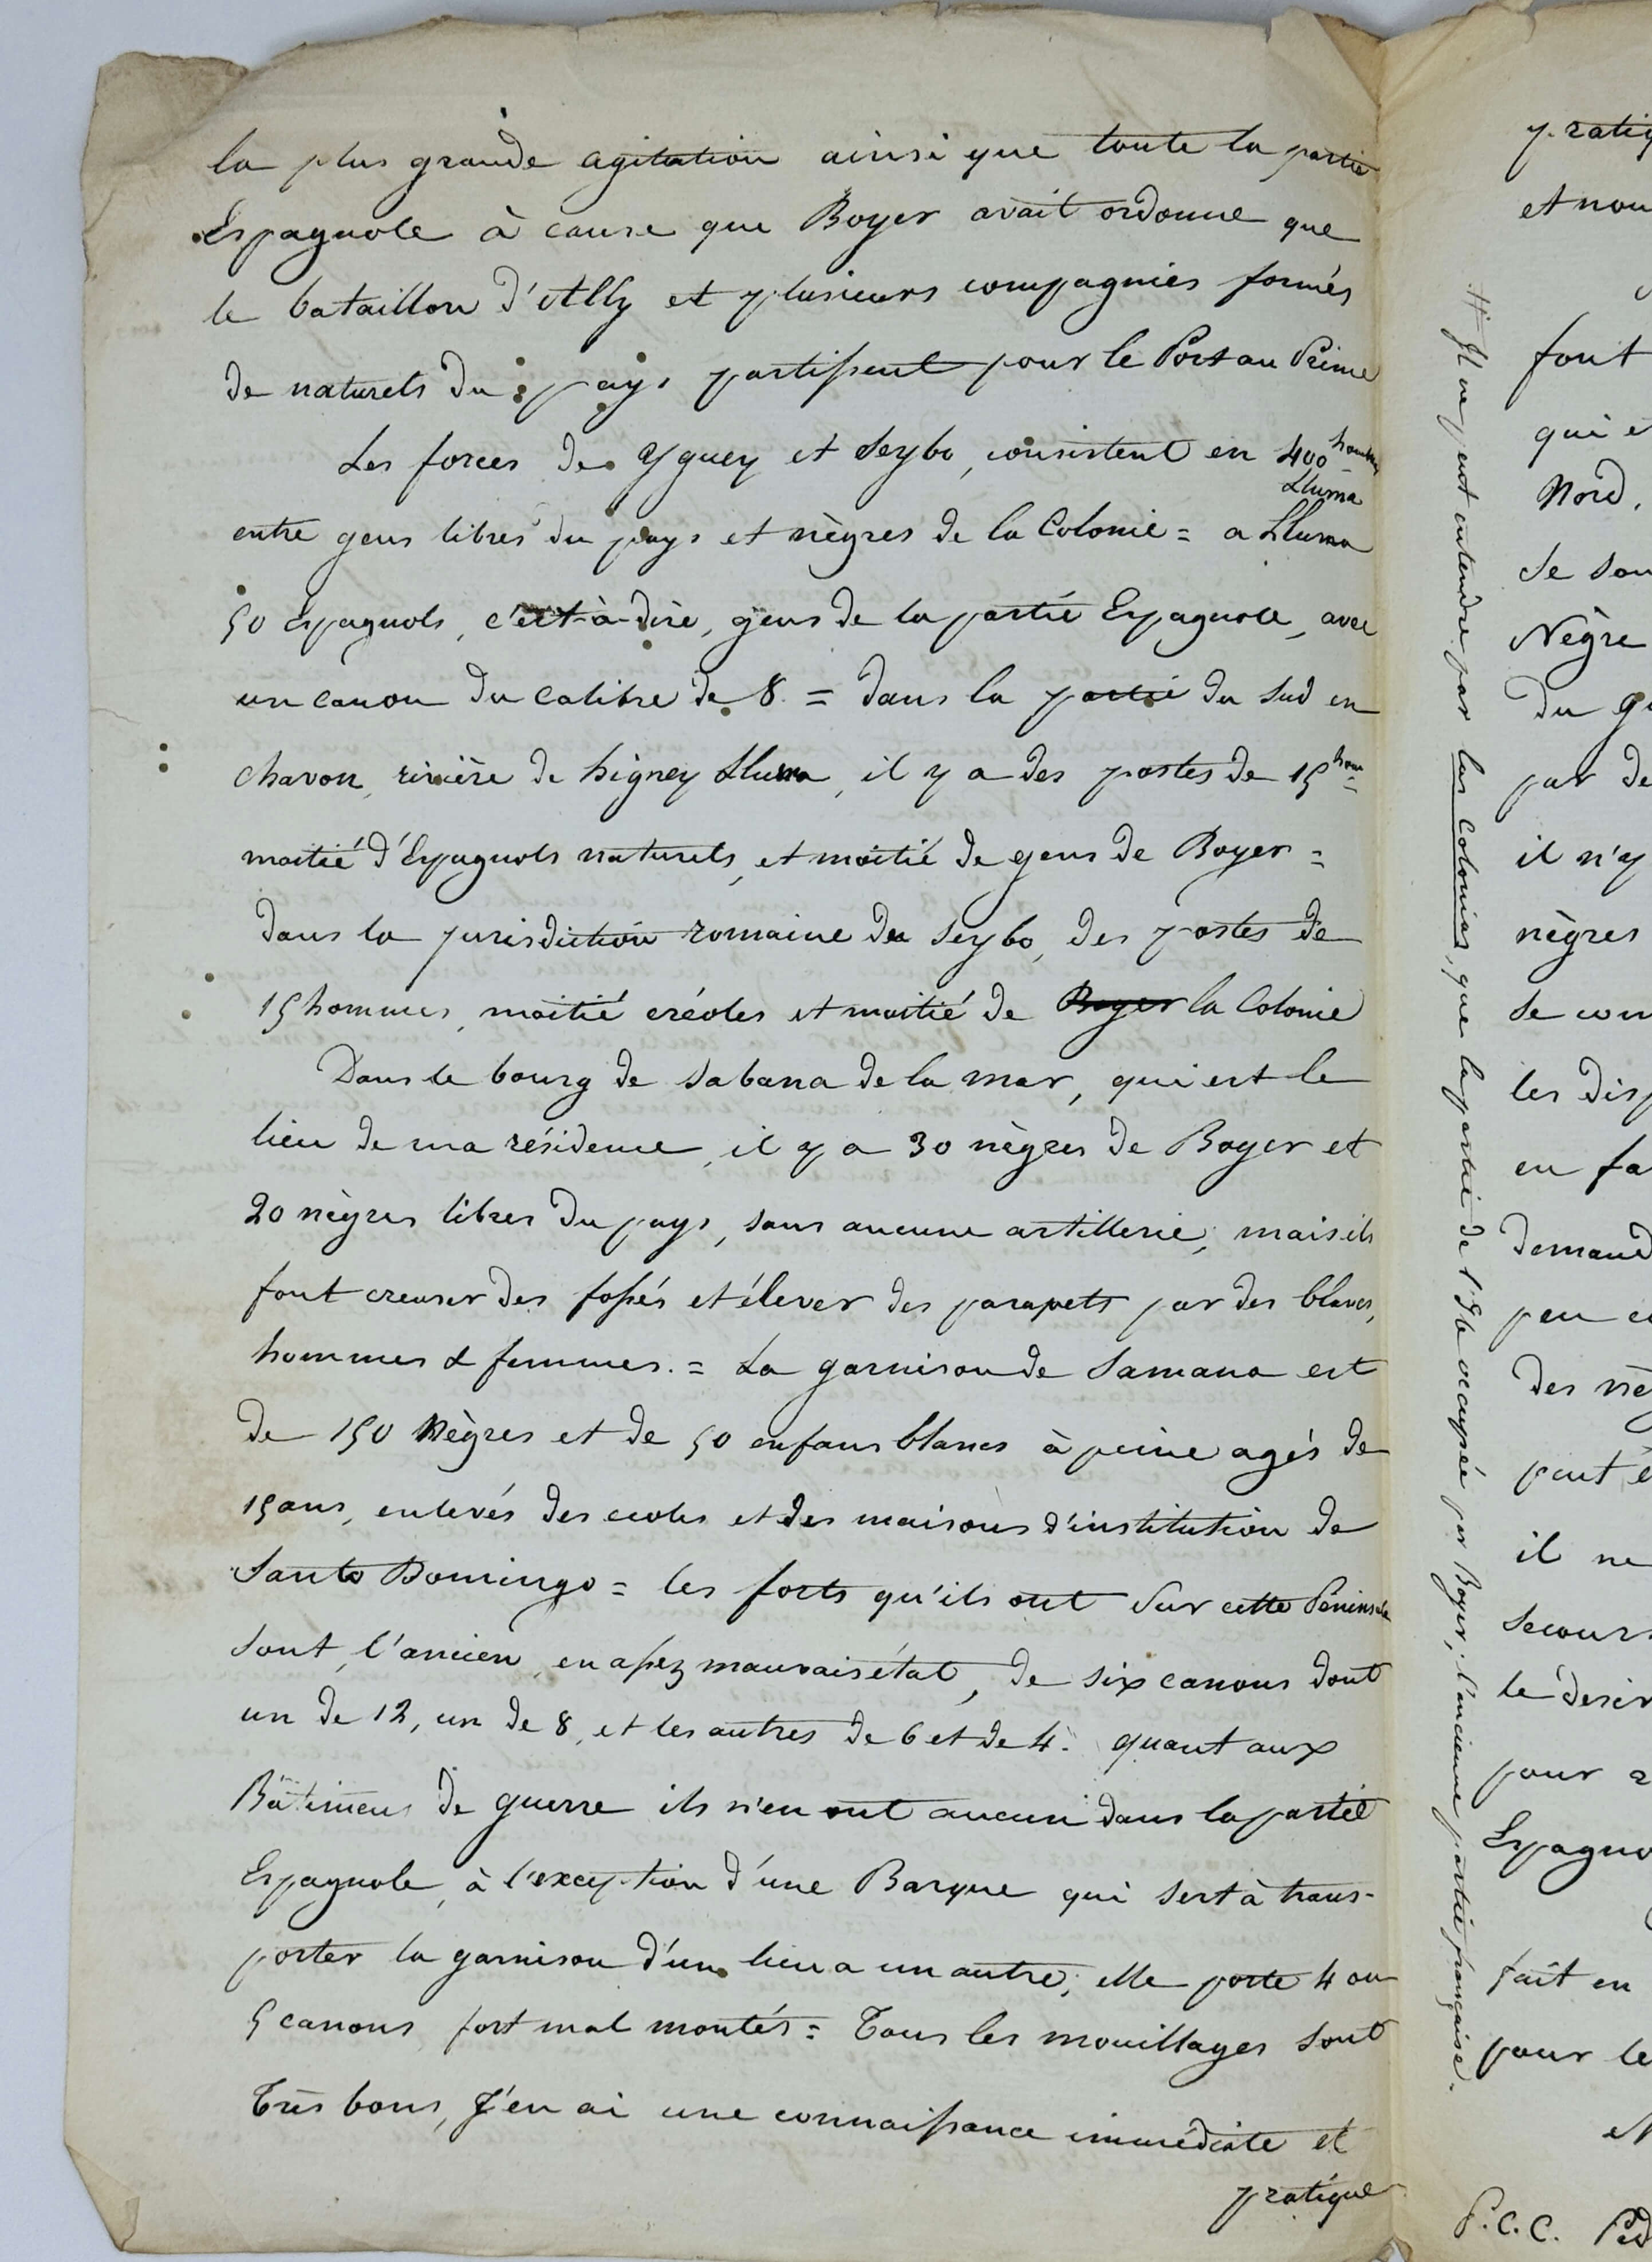 la plus grande agitation ainsi que toute la partie
Espagnole à cause que Boyer avait ordonné que
le bataillon d'Ally et plusieurs compagnies formés
de naturels du pays partissent pour le Port au Prince
Les forces de Yguey et Seybo, consistent en 400 hommes
Lluma
entre gens libres du pays et nègres de la Colonie = a Lluma
50 Espagnols, c'est-à-dire, gens de la partie Espagnole, avec
un canon du calibre de 8. = dans la partie du Sud en
chavon, rivière de higney Lluma, il y a des postes de 15 hom
moitié d'Espagnols naturels, et moitié de gens de Boyer =
dans la jurisdiction romaine de Seybo, des postes de
15 hommes, moitié créoles et moitié de Boyer la Colonie
Dans le bourg de Sabana de la mar, qui est le
lieu de ma résidence, il y a 30 nègres de Boyer et
20 nègres libres du pays, sans aucune artillerie, mais ils
font creuser des fossés et élever des parapets par des blancs,
hommes & femmes. = La garnison de Samana est
de 150 Nègres et de 50 enfans blancs à peine agés de
15 ans, enlevés des ecoles et des maisons d'institution de
Santo Domingo = les forts qu'ils ont sur cette Péninsule
sont, l'ancien, en assez mauvais état, de six canons dont
un de 12, un de 8, et les autres de 6 et de 4. quant aux
Bâtimens de guerre ils n'en ont aucun dans la partie
Espagnole, à l'exception d'une Barque qui sert à trans-
porter la garnison d'un lieu a un autre; elle porte 4 ou
5 canons fort mal montés = Tous les mouillages sont
Très bons, J'en ai une connaissance immédiate et
pratique
# Il ne peut entendre par las Colonias, que la partie de l'Isle occupée par Boyer, l'ancienne partie française.
pratiq
et nou
font
qui e
Nord,
de sou
Nègre
du g
par de
il n'y
nègres
se con
les disp
en fa
demand
peu c
des nè
peut ê
il ne
secours
le desir
pour r
Espagno
fait en
pour le
P.C.C.